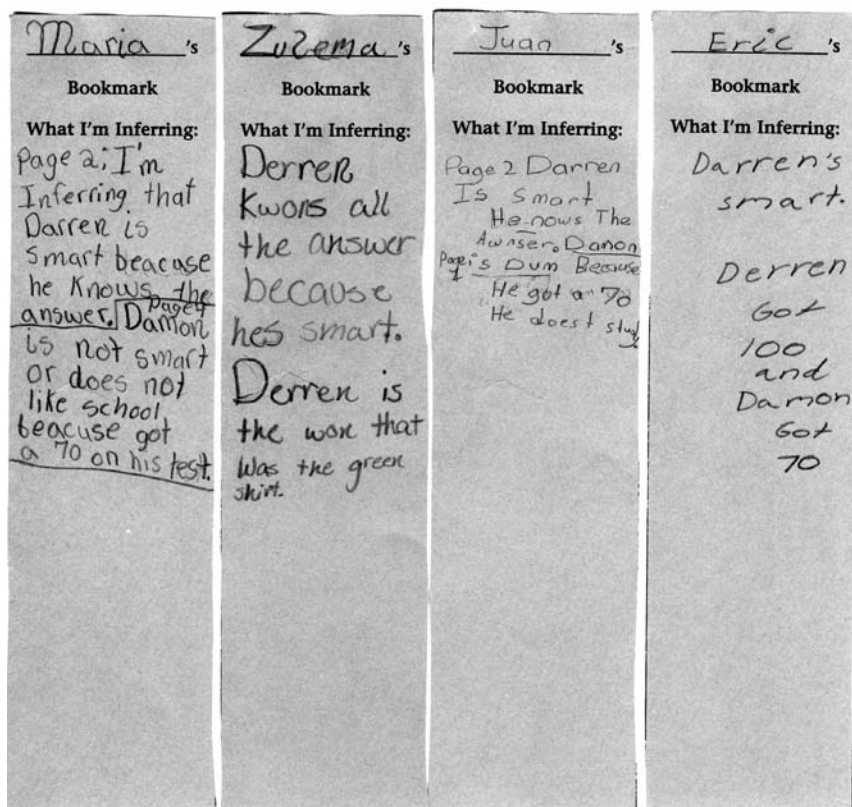 Maria 's
Bookmark
What I'm Inferring:
Page 2; I'm
Inferring that
Darren is
smart beacause
he Knows the
answer. Page 4 Damon
is not smart
or does not
like school
beacuse got
a 70 on his test.
Zulema 's
Bookmark
What I'm Inferring:
Derren
Kwons all
the answer
because
hes smart.
Derren is
the won that
was the green
shirt.
Juan 's
Bookmark
What I'm Inferring:
Page 2 Darren
Is smart
He nows The
Awnser. Damon
Page 4 is Dum Because
He got an 70
He doest study
Eric 's
Bookmark
What I'm Inferring:
Darren's
smart.
Derren
Got
100
and
Damon
Got
70